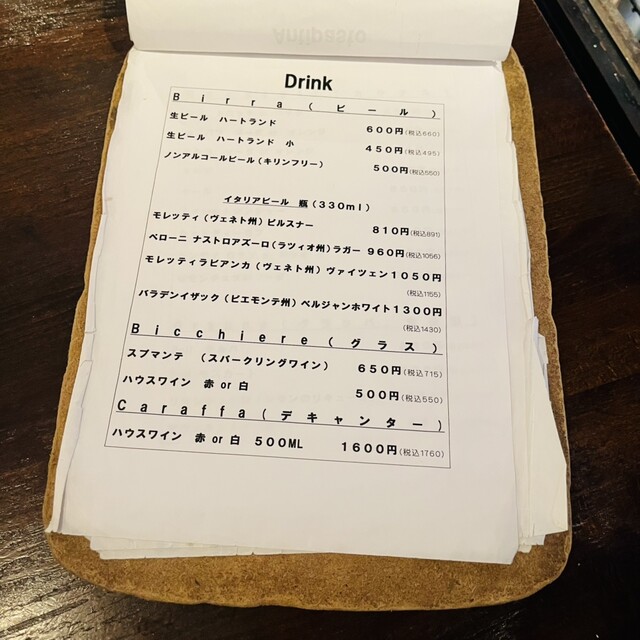 Antipasto
Drink
Birra(ビール)
生ビール ハートランド 600円(税込660)
生ビール ハートランド 小 450円(税込495)
ノンアルコールビール(キリンフリー) 500円(税込550)
イタリアビール 瓶(330ml)
モレッティ(ヴェネト州)ピルスナー 810円(税込891)
ペローニ ナストロアズーロ(ラツィオ州)ラガー 960円(税込1056)
モレッティラビアンカ(ヴェネト州)ヴァイツェン1050円
(税込1155)
バラデンイザック(ピエモンテ州)ベルジャンホワイト1300円
(税込1430)
Bicchiere(グラス)
スプマンテ (スパークリングワイン) 650円(税込715)
ハウスワイン 赤 or 白 500円(税込550)
Caraffa(デキャンター)
ハウスワイン 赤 or 白 500ML 1600円(税込1760)